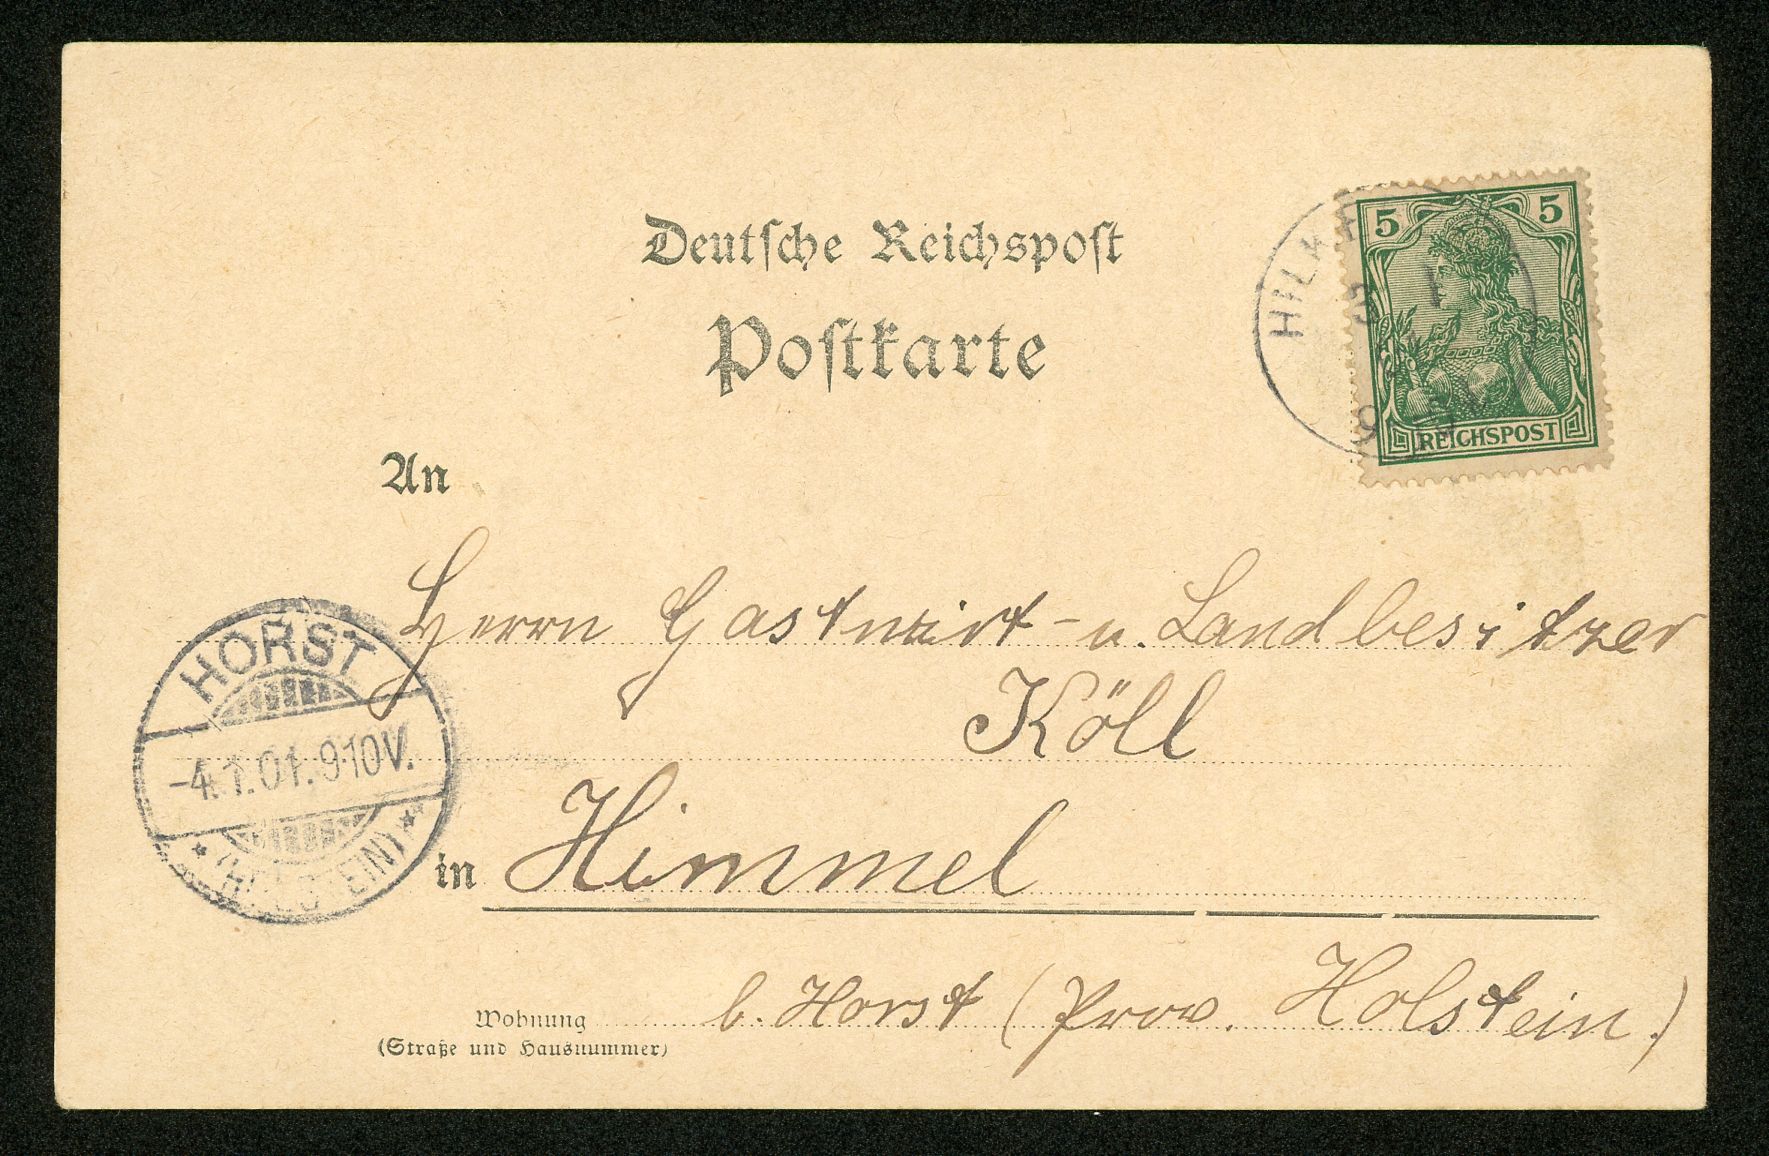 Deutsche Reichspost
Postkarte
5 5
REICHSPOST
An
Herrn Gastwirt- u. Landbesitzer
Köll
in Himmel
b. Horst (Prov. Holstein.)
Wohnung
(Straße und Hausnummer)
HORST
-4.1.01.9-10V.
* (HOLSTEIN) *